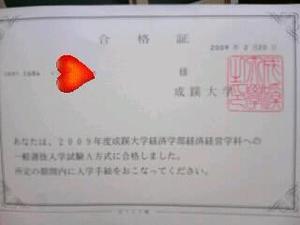 合格証
2009年2月20日
様
成蹊大学
あなたは、2009年度成蹊大学経済学部経済経営学科への
一般選抜入学試験A方式に合格しました。
所定の期間内に入学手続をおこなってください。